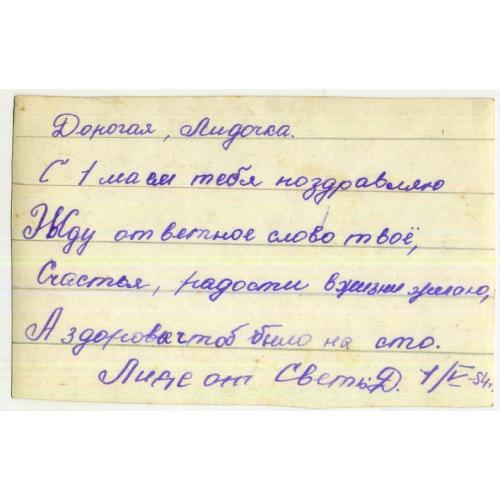 Дорогая, Лидочка.
С 1 маем тебя поздравляю
Жду ответное слово твоё,
Счастья, радости в жизни желаю,
А здоровья чтоб было на сто.
Лиде от Светы Д. 1/V-54г.